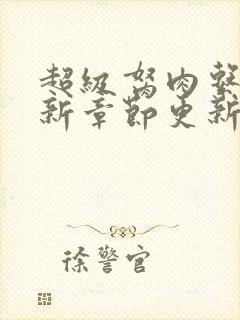 超級肉
新章節更新
徐警官